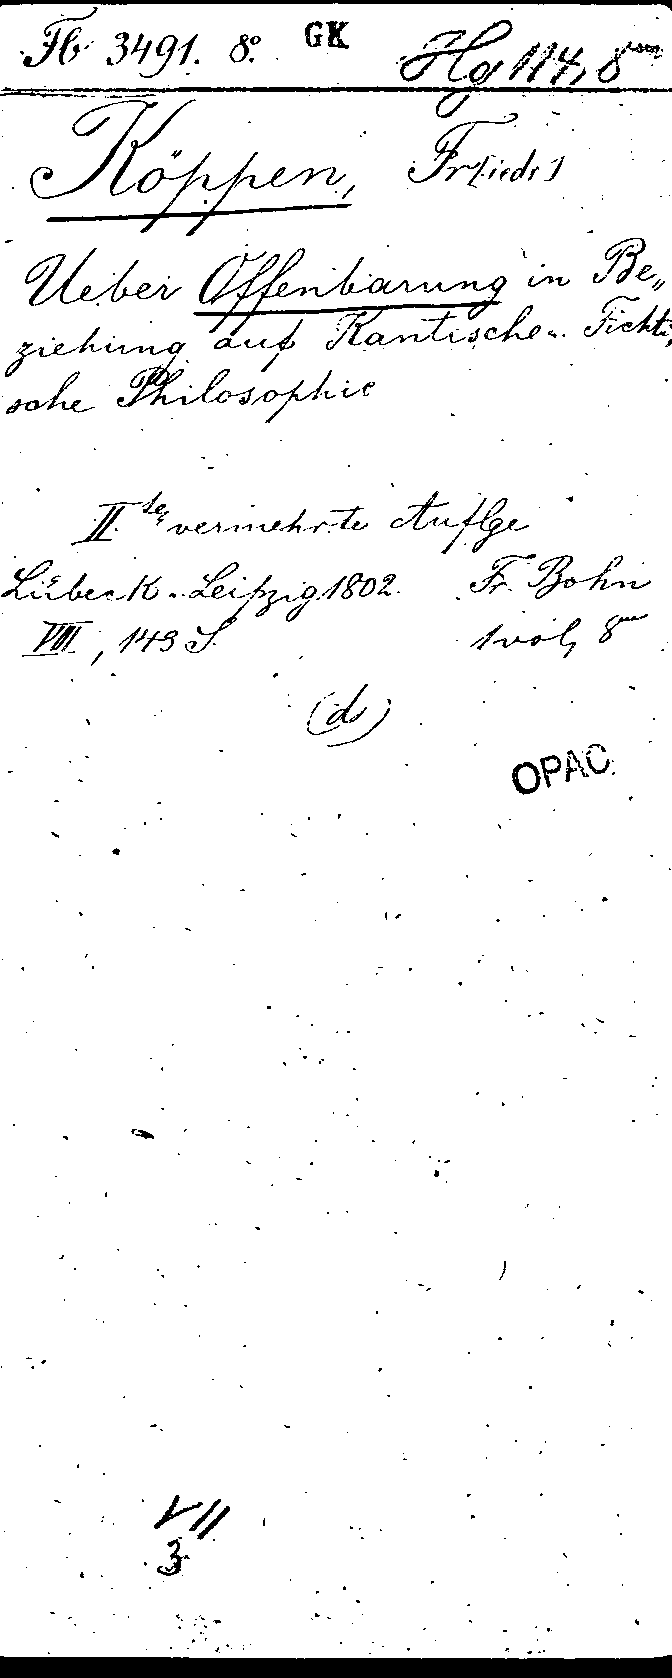 Fb 3491. 8° GK Hg 114, 8vo
Köppen, Fr[iedr]
Ueber Offenbarung in Be„
ziehung auf Kantische u. Fichti„
sche Philosophie
II te vermehrte Auflge
Lübeck u. Leipzig 1802 Fr. Bohn
VIII, 143 S. 1 vol, 8vo
(d)
OPAC
VII
3